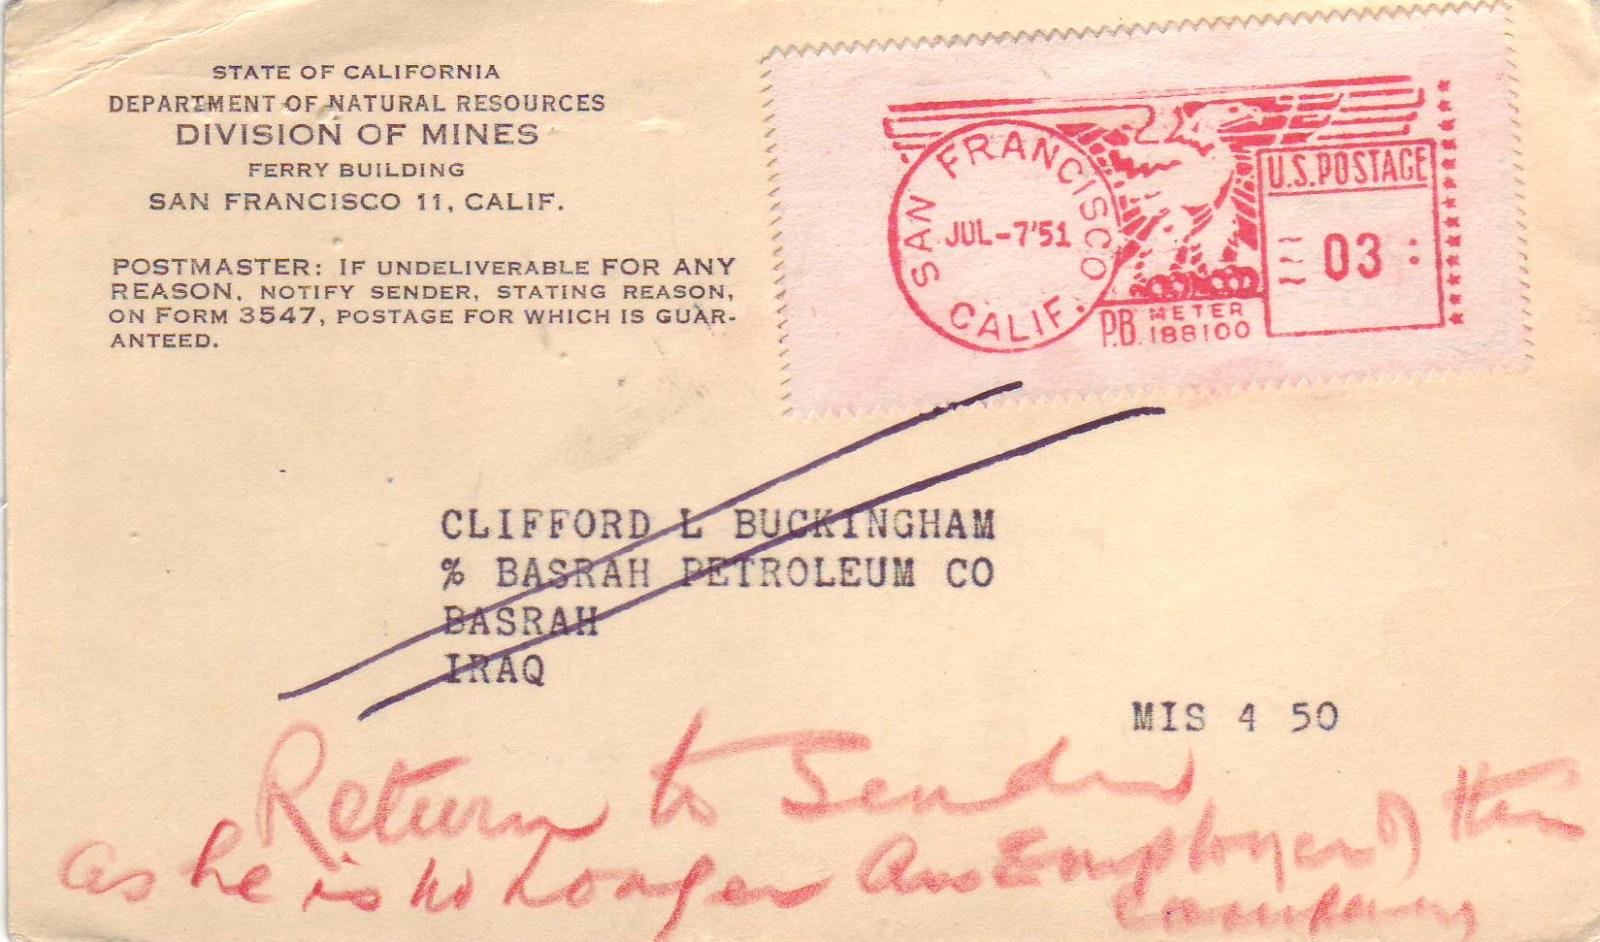 STATE OF CALIFORNIA
DEPARTMENT OF NATURAL RESOURCES
DIVISION OF MINES
FERRY BUILDING
SAN FRANCISCO 11, CALIF.
POSTMASTER: IF UNDELIVERABLE FOR ANY
REASON, NOTIFY SENDER, STATING REASON,
ON FORM 3547, POSTAGE FOR WHICH IS GUAR-
ANTEED.
SAN FRANCISCO CALIF.
JUL-7'51
U.S. POSTAGE
03
P.B. METER
188100
CLIFFORD L BUCKINGHAM
% BASRAH PETROLEUM CO
BASRAH
IRAQ
MIS 4 50
Return to Sender
as he is no longer an Employee of this
Company